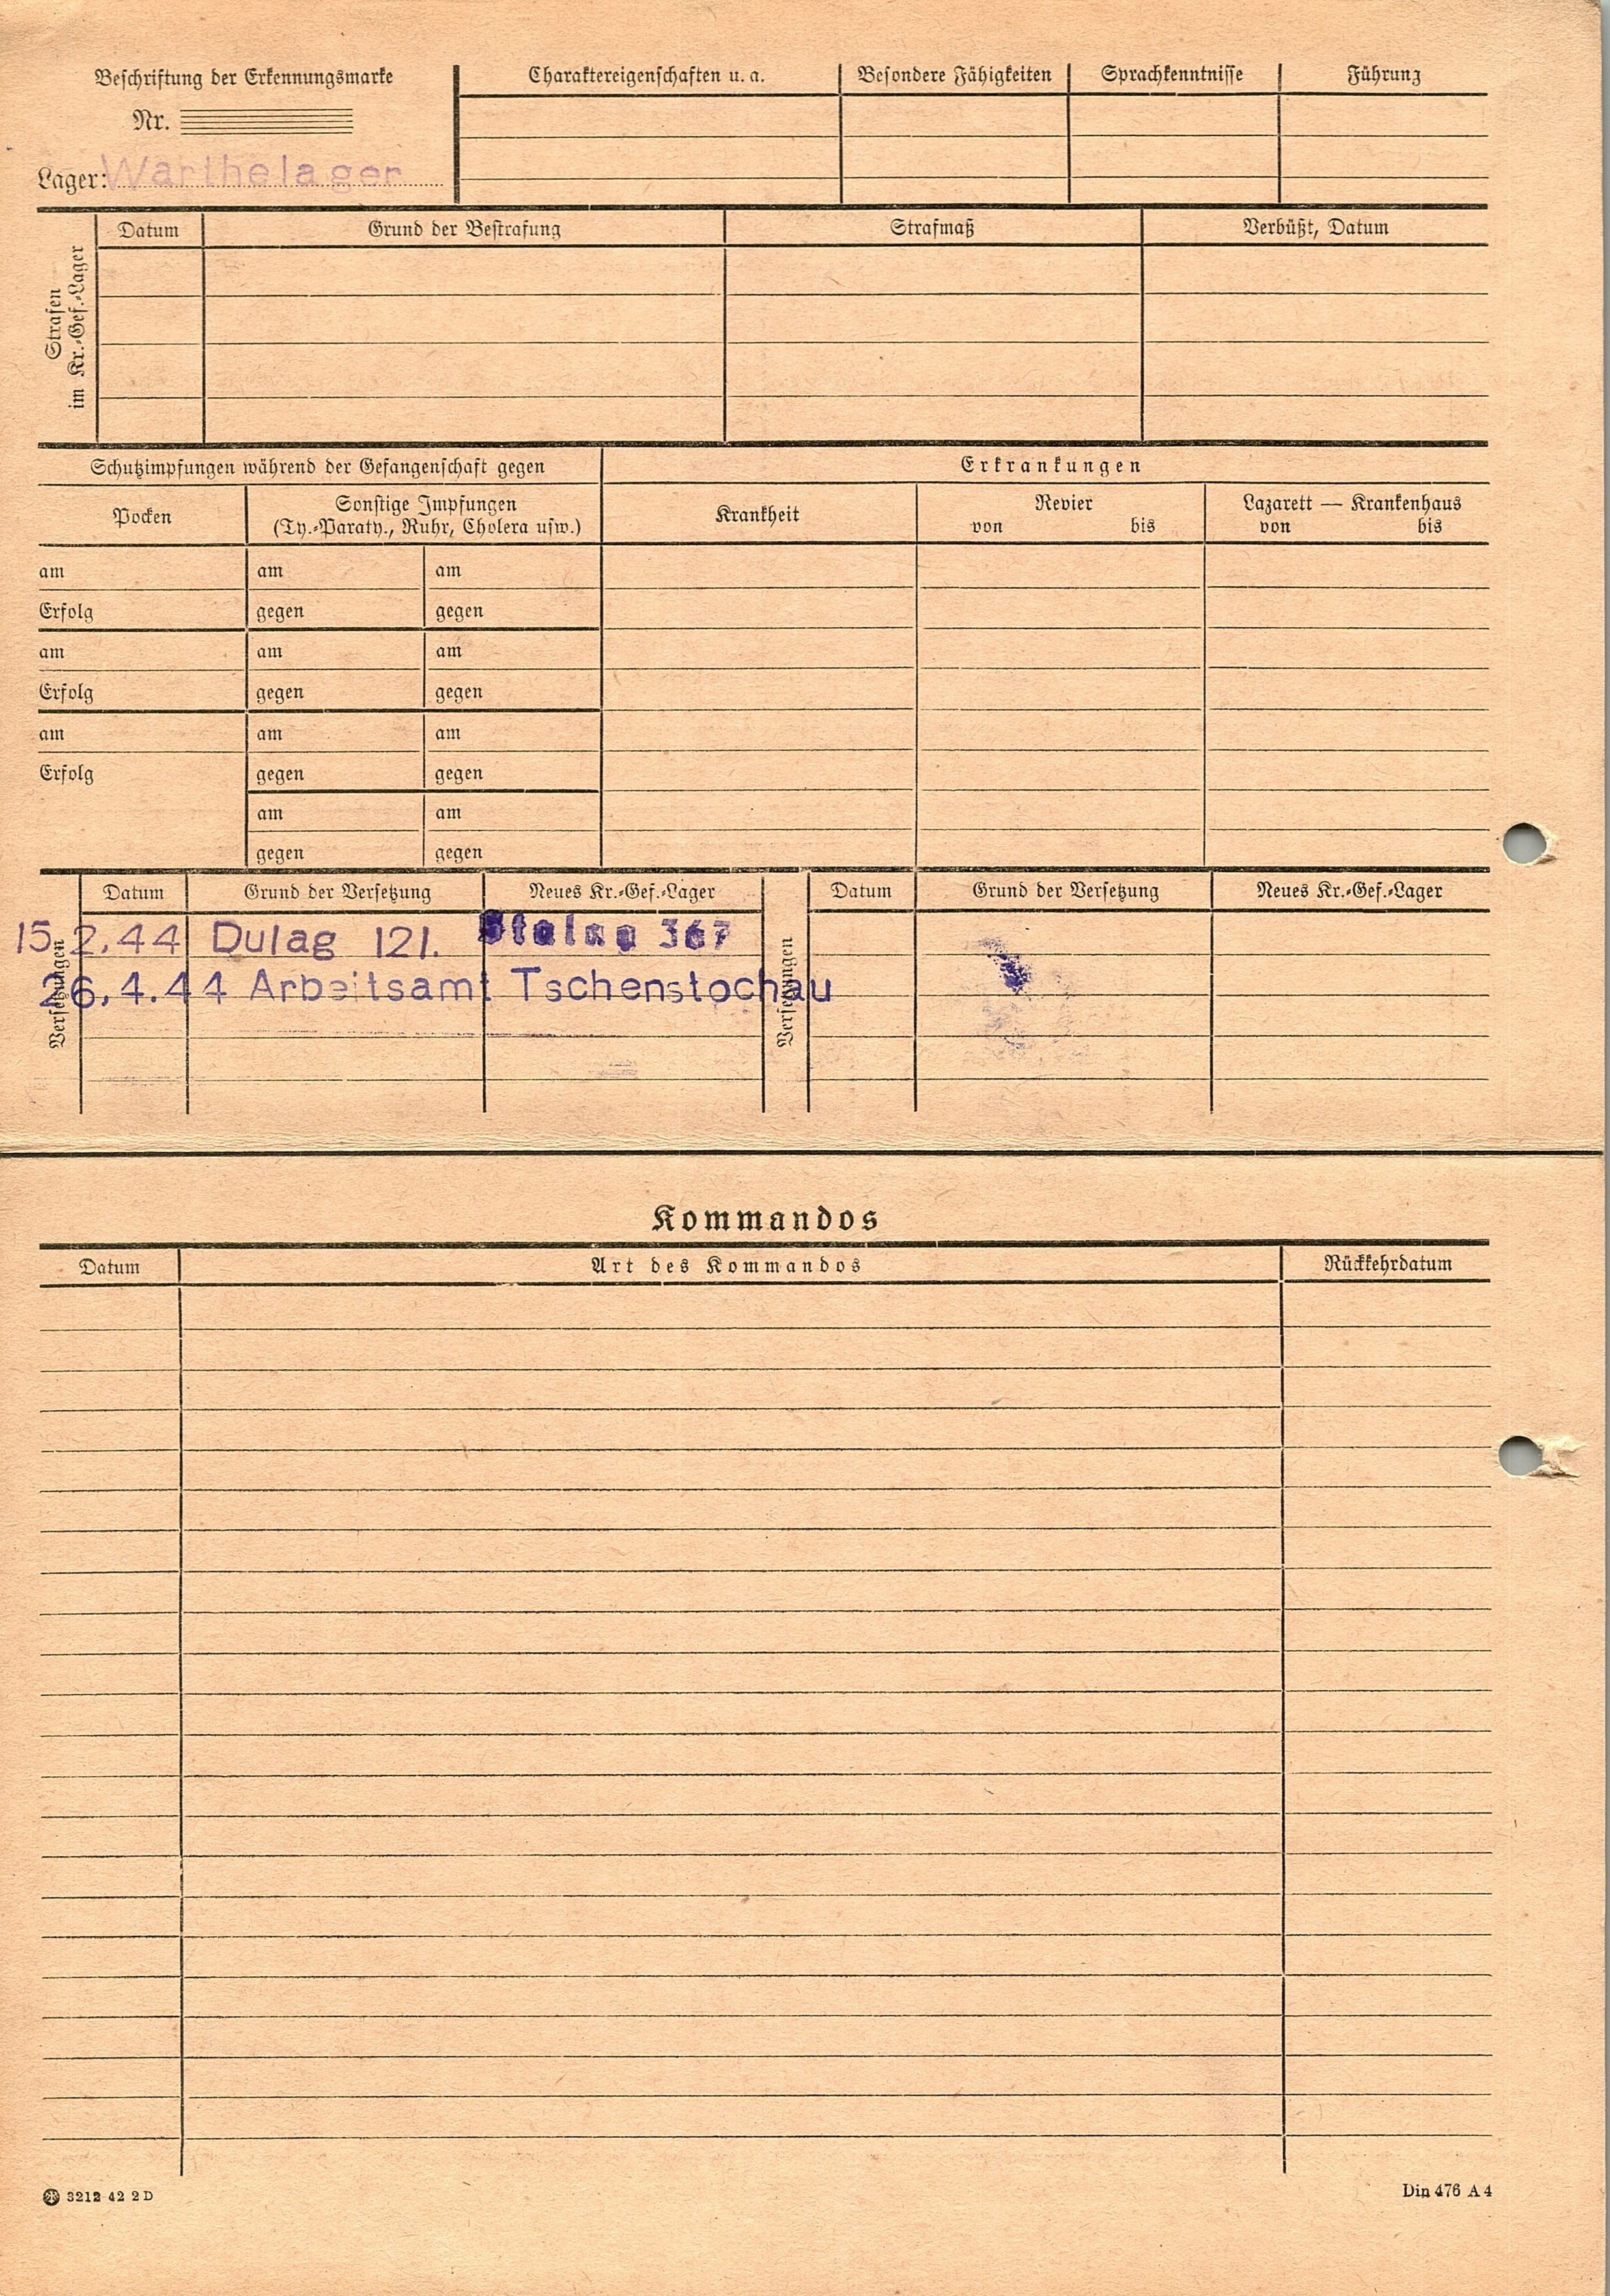 Beschriftung der Erkennungsmarke
Nr.
Lager: Warthelager
Charaktereigenschaften u. a.
Besondere Fähigkeiten
Sprachkenntnisse
Führung
Strafen
im Kr.-Gef.-Lager
Datum
Grund der Bestrafung
Strafmaß
Verbüßt, Datum
Schutzimpfungen während der Gefangenschaft gegen
Erkrankungen
Pocken
Sonstige Impfungen
(Ty.-Paraty., Ruhr, Cholera usw.)
Krankheit
Revier
von bis
Lazarett — Krankenhaus
von bis
am am am
Erfolg gegen gegen
am am am
Erfolg gegen gegen
am am am
Erfolg gegen gegen
am am
gegen gegen
Versetzungen
Datum Grund der Versetzung Neues Kr.-Gef.-Lager
15.2.44 Dulag 121. Stalag 367
26.4.44 Arbeitsamt Tschenstochau
Versetzungen
Datum Grund der Versetzung Neues Kr.-Gef.-Lager
Kommandos
Datum Art des Kommandos Rückkehrdatum
3212 42 2 D
Din 476 A 4